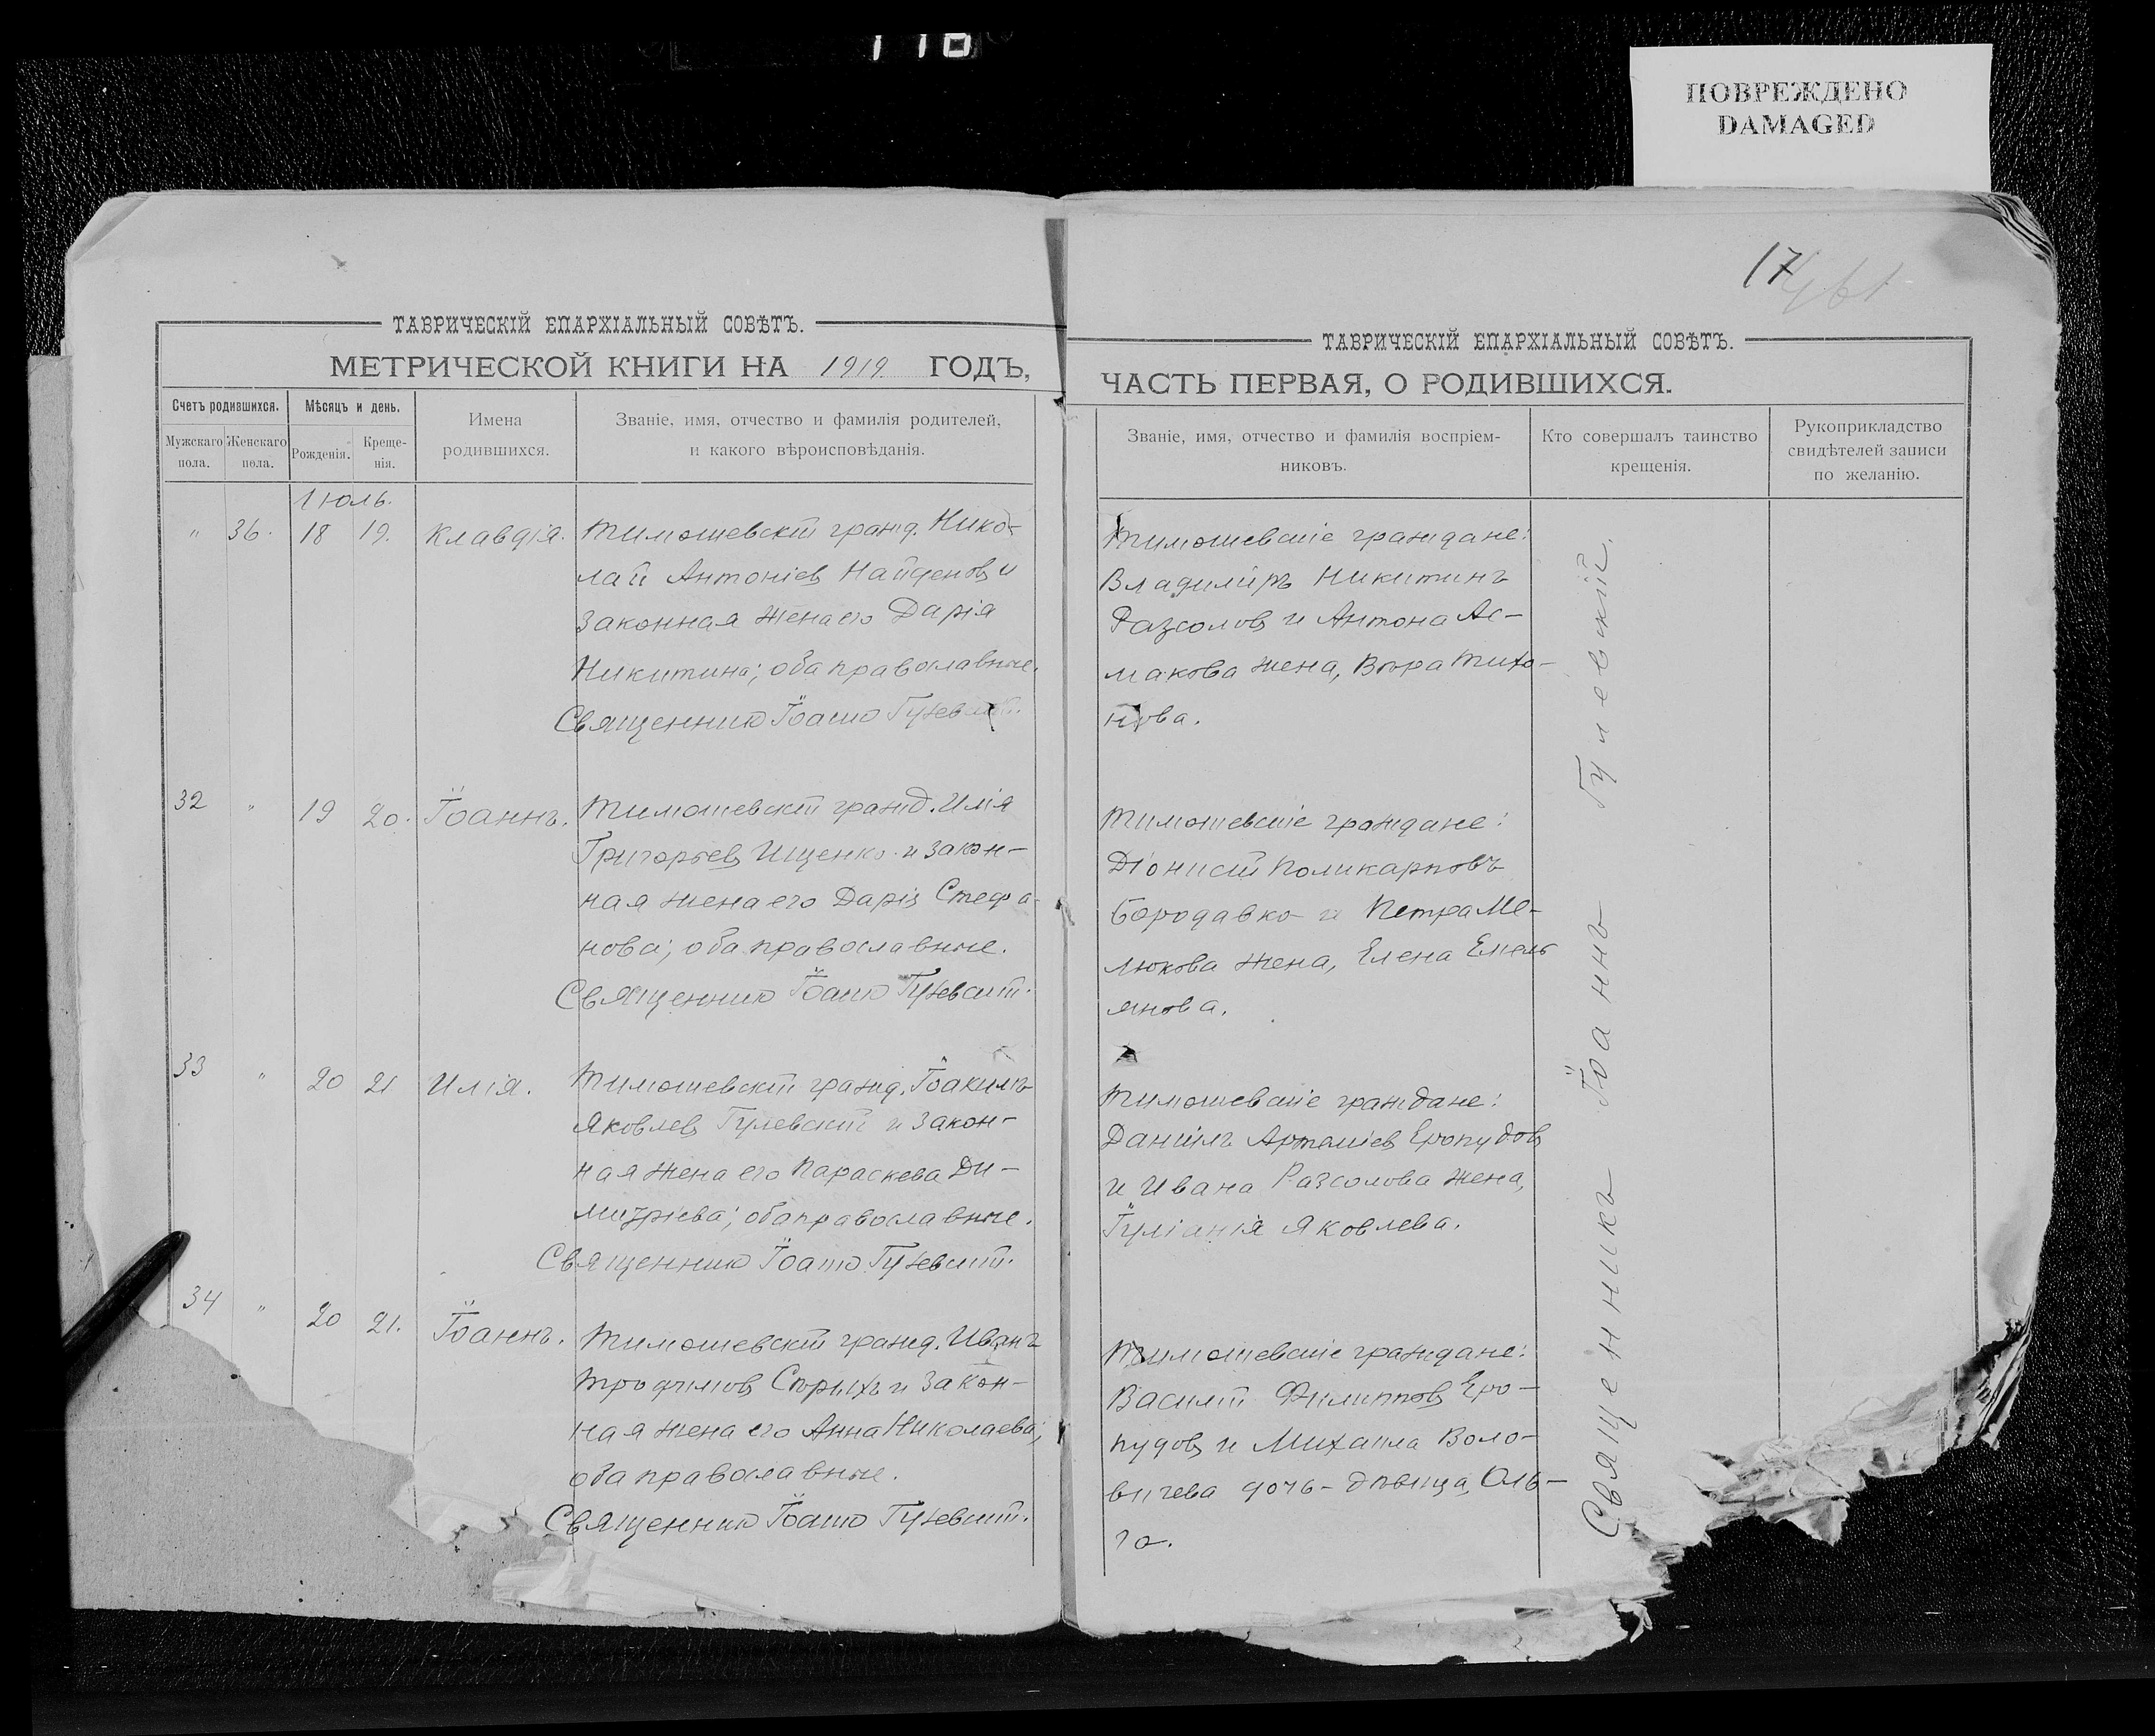 118
ПОВРЕЖДЕНО
DAMAGED
17
461
ТАВРИЧЕСКІЙ ЕПАРХІАЛЬНЫЙ СОВѢТЪ.
МЕТРИЧЕСКОЙ КНИГИ НА 1919 ГОДЪ,
Счетъ родившихся.
Мѣсяцъ и день.
Имена родившихся.
Званіе, имя, отчество и фамилія родителей,
и какого вѣроисповѣданія.
Мужскаго пола.
Женскаго пола.
Рожденія.
Крещенія.
Іюль.
" 36. 18 19. Клавдія. Тимошевскій гражд. Нико-
лай Антоніевъ Найденовъ и
законная жена его Дарія
Никитина; оба православные.
Священникъ Іоаннъ Гулевскій.
32 " 19 20. Іоаннъ. Тимошевскій гражд. Илія
Григорьевъ Ищенко и закон-
ная жена его Дарія Стефа-
нова; оба православные.
Священникъ Іоаннъ Гулевскій.
33 " 20 21 Илія. Тимошевскій гражд. Іоакимъ
Яковлевъ Гулевскій и закон-
ная жена его Параскева Ди-
митріева; оба православные.
Священникъ Іоаннъ Гулевскій.
34 " 20 21. Іоаннъ. Тимошевскій гражд. Иванъ
Трофимовъ Сѣрыхъ и закон-
ная жена его Анна Николаева;
оба православные.
Священникъ Іоаннъ Гулевскій.
ТАВРИЧЕСКІЙ ЕПАРХІАЛЬНЫЙ СОВѢТЪ.
ЧАСТЬ ПЕРВАЯ, О РОДИВШИХСЯ.
Званіе, имя, отчество и фамилія воспріем-
никовъ.
Кто совершалъ таинство
крещенія.
Рукоприкладство
свидѣтелей записи
по желанію.
Тимошевскіе граждане:
Владиміръ Никитинъ
Разсоловъ и Антона Ас-
макова жена, Вѣра Тихо-
нова.
Тимошевскіе граждане:
Діонисій Поликарповъ
Бородавко и Петра Ме-
люкова жена, Елена Емель
янова.
Тимошевскіе граждане:
Даніилъ Артеміевъ Еропудовъ
и Ивана Разсолова жена,
Іуліанія Яковлева.
Тимошевскіе граждане:
Василій Филипповъ Еро-
пудовъ и Михаила Воло-
вичева дочь-дѣвица, Оль-
га.
Священникъ Іоаннъ Гулевскій.